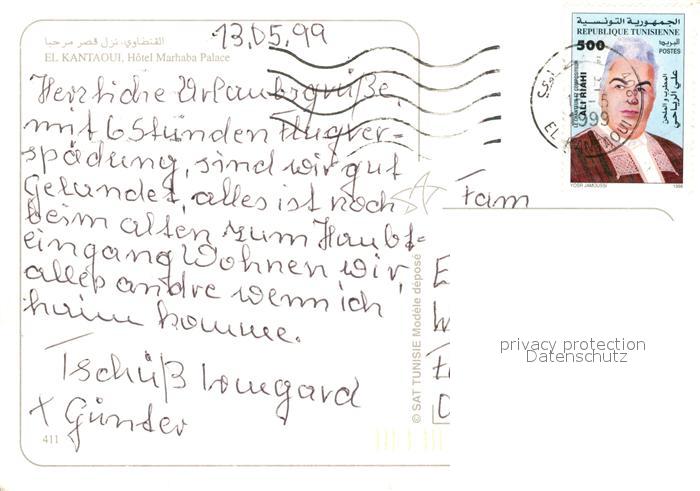 القنطاوي، نزل قصر مرحبا
EL KANTAOUI, Hôtel Marhaba Palace
13.05.99
Herzliche Urlaubsgrüße,
mit 6 Stunden Flugver=
spädung, sind wir gut
gelandet, alles ist noch
beim alten zum Haubt=
eingang Wohnen wir,
alles andre wenn ich
heim komme.
Tschüß
+ Günter
411
© SAT TUNISIE Modèle déposé
الجمهورية التونسية
REPUBLIQUE TUNISIENNE
500
البريد
POSTES
علي الرياحي
المطرب و الملحن
ALI RIAHI
YOSR JAMOUSSI
1998
1999
EL KANTAOUI
Fam
privacy protection
Datenschutz